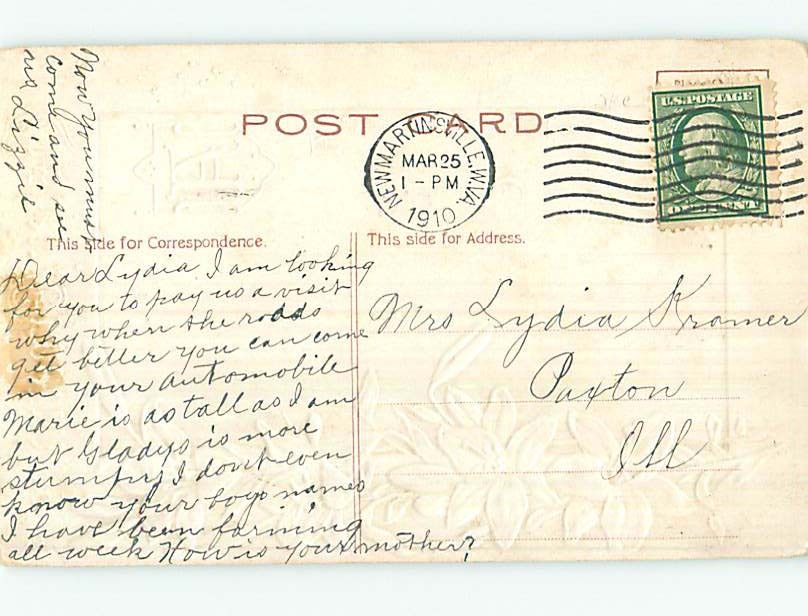 POST CARD
NEW MARTINSVILLE, W.VA.
MAR 25
1 - PM
1910
U.S. POSTAGE
This side for Correspondence.
This side for Address.
Dear Lydia I am looking
for you to pay us a visit
why when the roads
get better you can come
in your automobile
Marie is as tall as I am
but Gladys is more
stumpy I don't even
know your boys names
I have been farming
all week How is your mother?
Now you must
come and see
us Lizzie
Mrs Lydia Kramer
Paxton
Ill